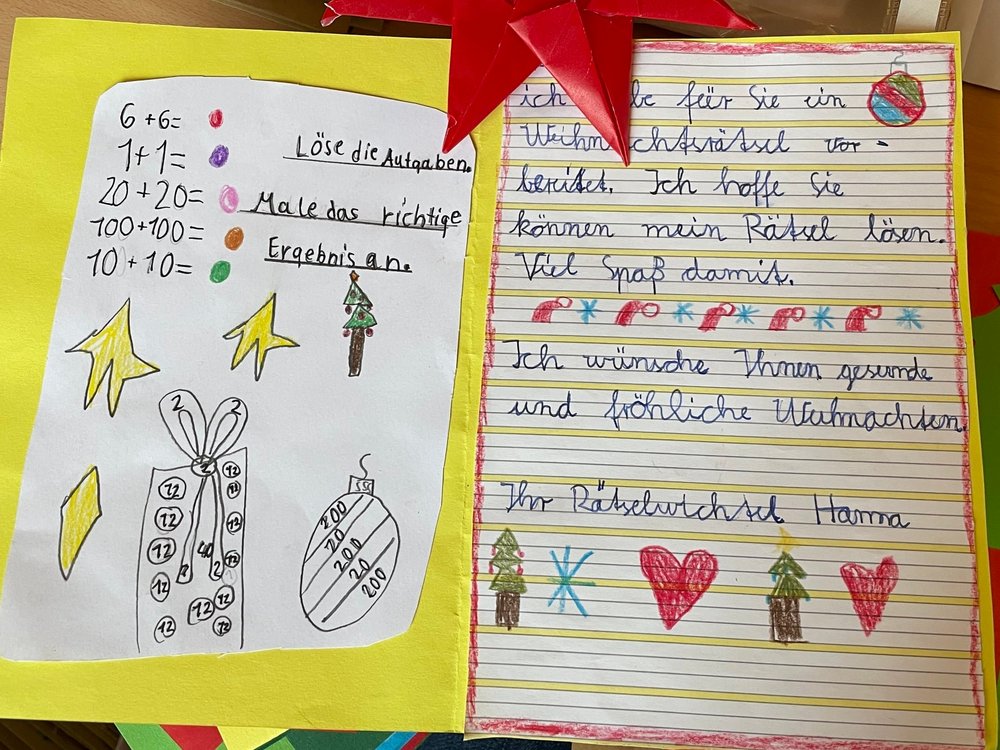 6 + 6 =
1 + 1 =
20 + 20 =
100 + 100 =
10 + 10 =
Löse die Aufgaben.
Male das richtige
Ergebnis an.
2 2
2
12 12
12 12
12
12 40 12
2 2
12 12
12 12
12 12
55
200
20
200
20
200
ich für Sie ein
Weihn chtsrätsel vor -
bereitet. Ich hoffe Sie
können mein Rätsel lösen.
Viel Spaß damit.
Ich wünsche Ihnen gesunde
und fröhliche Weihnachten
Ihr Rätselwichtel Hanna